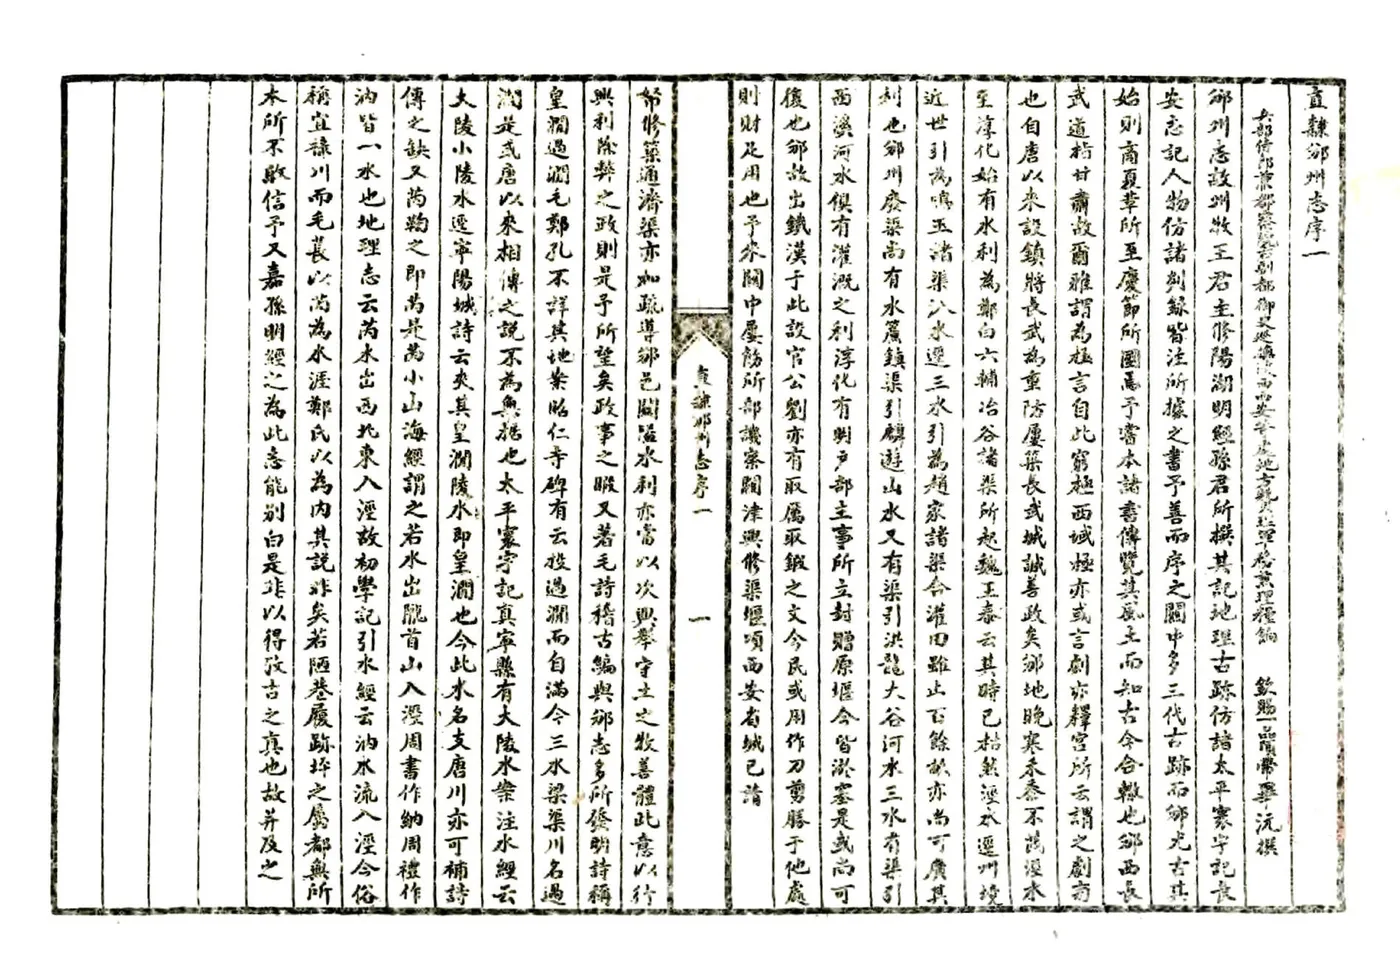 直隸邠州志序一
兵部侍郎兼都察院右副都御史巡撫陝西西安等處地方贊理軍務兼理糧餉 欽賜一品頂帶畢沅撰
邠州志故州牧王君主修陽湖明經孫君所撰其記地理古跡仿諸太平寰宇記長
安志記人物仿諸列錄皆注所據之書予善而序之關中多三代古跡而邠尤古其
始則商夏辜所至慶節所國焉予嘗本諸書傳覽其風土而知古今合轍也邠西長
武道指甘肅故爾雅謂為極言自此窮極西域極亦或言劇亦釋宮所云謂之劇旁
也自唐以來設鎮將長武為重防屢築長武城誠善政矣邠地晚寒禾黍不茂涇水
至淳化始有水利為鄭白六輔冶谷諸渠所起魏王泰云其時已枯然涇水逕州境
近世引為鳴玉渚渠八水逕三水引為趙家諸渠合灌田雖止百餘畝亦尚可廣其
利也邠州廢渠尚有水簾鎮渠引麟遊山水又有渠引洪龍大谷河水三水有渠引
西溪河水俱有灌溉之利淳化有明戶部主事所立封贈原堰今皆淤塞是或尚可
復也邠故出鐵漢于此設官公劉亦有取厲取鍛之文今民或用作刀剪勝于他處
則財足用也予來關中屢飭所部譏察關津興修渠堰頃西安省城已請
帑修築通濟渠亦如疏導邠邑關溢水利亦當以次興舉守土之牧善體此意以行
興利除弊之政則是予所望矣政事之暇又著毛詩稽古編與邠志多所發明詩稱
皇澗過澗毛鄭孔不詳其地案昭仁寺碑有云投過澗而自滿今三水梁渠川名過
澗是或唐以來相傳之說不為無据也太平寰宇記真寧縣有大陵水案注水經云
大陵小陵水逕寧陽城詩云夾其皇澗陵水即皇澗也今此水名支唐川亦可補詩
傳之缺又芮鞫之即芮是芮小山海經謂之若水出隴首山入涇周書作納周禮作
汭皆一水也地理志云芮水出西北東入涇故初學記引水經云汭水流入涇今俗
稱宜祿川而毛萇以芮為水涯鄭氏以為內其說非矣若陋巷履跡坪之屬都無所
本所不敢信予又嘉孫明經之為此志能別白是非以得攷古之真也故并及之
直隸邠州志序一
一